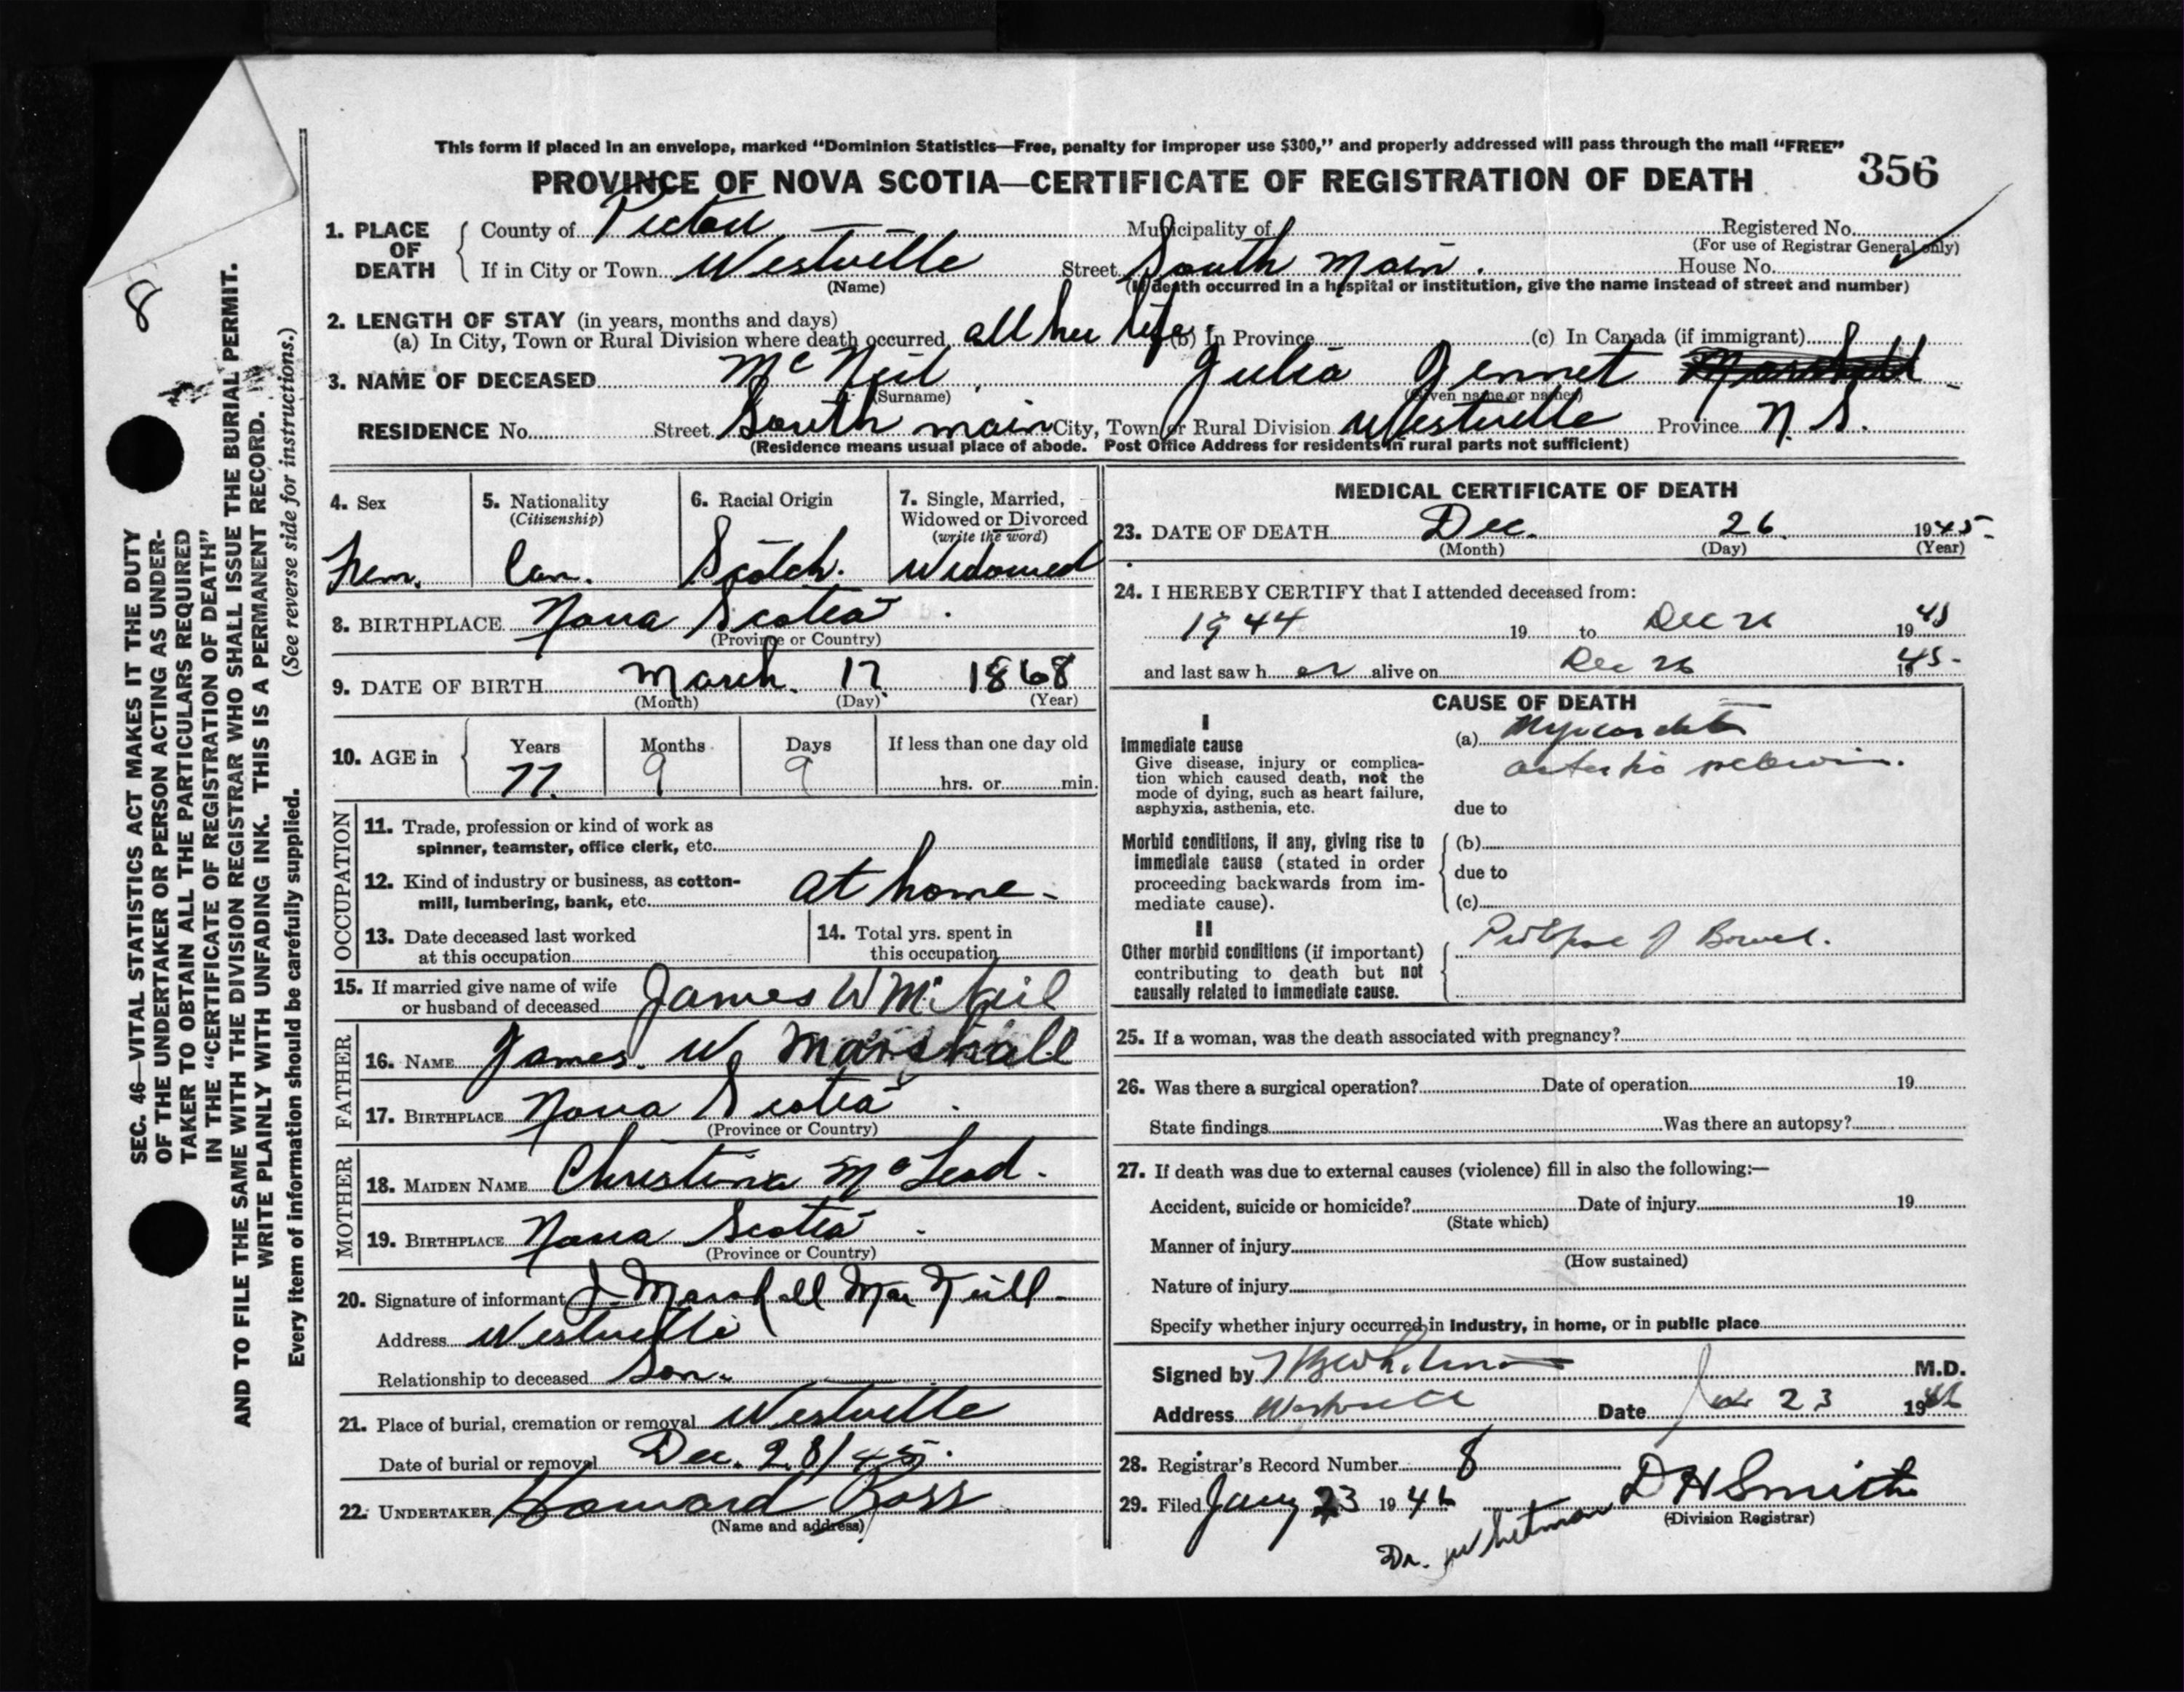 This form if placed in an envelope, marked "Dominion Statistics—Free, penalty for improper use $300," and properly addressed will pass through the mail "FREE"
PROVINCE OF NOVA SCOTIA—CERTIFICATE OF REGISTRATION OF DEATH 356
1. PLACE OF DEATH County of Pictou Municipality of Registered No.
(For use of Registrar General only)
If in City or Town Westville Street South Main. House No.
(Name) (If death occurred in a hospital or institution, give the name instead of street and number)
2. LENGTH OF STAY (in years, months and days)
(a) In City, Town or Rural Division where death occurred all her life. (b) In Province (c) In Canada (if immigrant)
3. NAME OF DECEASED McNeil, Julia Jennet Marshall
(Surname) (Given name or names)
RESIDENCE No. Street South Main City, Town or Rural Division Westville Province N.S.
(Residence means usual place of abode. Post Office Address for residents in rural parts not sufficient)
4. Sex 5. Nationality 6. Racial Origin 7. Single, Married,
(Citizenship) Widowed or Divorced
(write the word)
Fem. Can. Scotch. Widowed
8. BIRTHPLACE Nova Scotia
(Province or Country)
9. DATE OF BIRTH March. 17. 1868
(Month) (Day) (Year)
10. AGE in Years Months Days If less than one day old
77. 9 9 hrs. or min.
OCCUPATION
11. Trade, profession or kind of work as
spinner, teamster, office clerk, etc.
12. Kind of industry or business, as cotton-
mill, lumbering, bank, etc. at home
13. Date deceased last worked 14. Total yrs. spent in
at this occupation this occupation
15. If married give name of wife
or husband of deceased James W McNeil
FATHER
16. NAME James. W. Marshall
17. BIRTHPLACE Nova Scotia
(Province or Country)
MOTHER
18. MAIDEN NAME Christina McLeod.
19. BIRTHPLACE Nova Scotia
(Province or Country)
20. Signature of informant J. Marshall MacNeill
Address Westville
Relationship to deceased Son.
21. Place of burial, cremation or removal Westville
Date of burial or removal Dec. 28/45.
22. UNDERTAKER Howard Ross
(Name and address)
MEDICAL CERTIFICATE OF DEATH
23. DATE OF DEATH Dec. 26 1945
(Month) (Day) (Year)
24. I HEREBY CERTIFY that I attended deceased from:
1944 19 to Dec 26 1945
and last saw her alive on Dec 26 1945
CAUSE OF DEATH
I
Immediate cause (a) Myocarditis
Give disease, injury or complica-
tion which caused death, not the
mode of dying, such as heart failure,
asphyxia, asthenia, etc. due to
Morbid conditions, if any, giving rise to (b)
immediate cause (stated in order
proceeding backwards from im- due to
mediate cause). (c)
II
Other morbid conditions (if important)
contributing to death but not
causally related to immediate cause.
Bowel.
25. If a woman, was the death associated with pregnancy?
26. Was there a surgical operation? Date of operation 19
State findings Was there an autopsy?
27. If death was due to external causes (violence) fill in also the following:—
Accident, suicide or homicide? Date of injury 19
(State which)
Manner of injury
(How sustained)
Nature of injury
Specify whether injury occurred in industry, in home, or in public place
Signed by M.D.
Address Westville Date Jan 23 1946
28. Registrar's Record Number 8
29. Filed Jany 23 1946 D H Smith
(Division Registrar)
Dr. Whitman
8
SEC. 46—VITAL STATISTICS ACT MAKES IT THE DUTY
OF THE UNDERTAKER OR PERSON ACTING AS UNDER-
TAKER TO OBTAIN ALL THE PARTICULARS REQUIRED
IN THE "CERTIFICATE OF REGISTRATION OF DEATH"
AND TO FILE THE SAME WITH THE DIVISION REGISTRAR WHO SHALL ISSUE THE BURIAL PERMIT.
WRITE PLAINLY WITH UNFADING INK. THIS IS A PERMANENT RECORD.
(See reverse side for instructions.)
Every item of information should be carefully supplied.